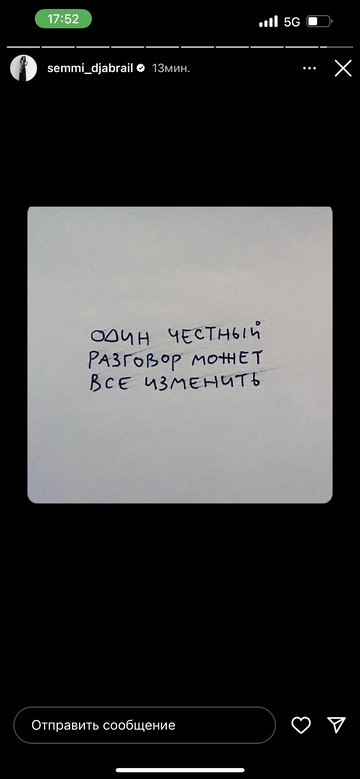 17:52
5G
semmi_djabrail 13мин.
ОДИН ЧЕСТНЫЙ
РАЗГОВОР МОЖЕТ
ВСЕ ИЗМЕНИТЬ
Отправить сообщение